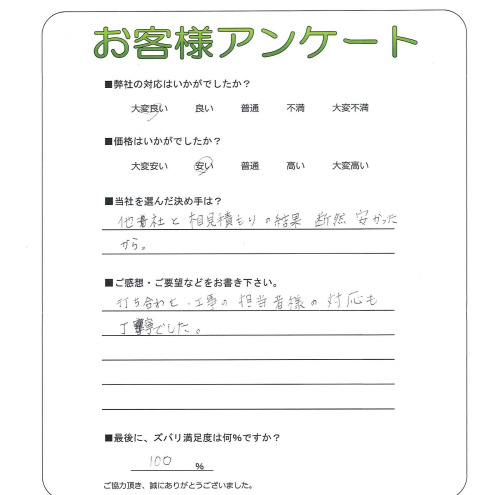 お客様アンケート
■弊社の対応はいかがでしたか？
大変良い 良い 普通 不満 大変不満
■価格はいかがでしたか？
大変安い 安い 普通 高い 大変高い
■当社を選んだ決め手は？
他社と相見積もりの結果 断然 安かった
から。
■ご感想・ご要望などをお書き下さい。
打ち合わせ・工事の担当者様の対応も
丁寧でした。
■最後に、ズバリ満足度は何％ですか？
100 ％
ご協力頂き、誠にありがとうございました。